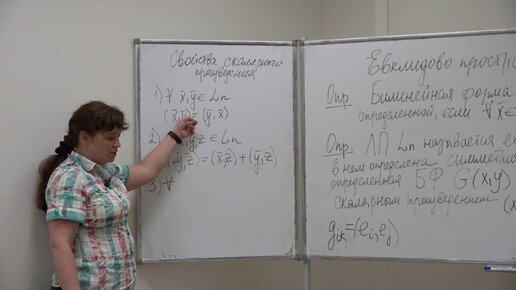 Свойства скалярного
произведения
1) ∀ x̄,ȳ ∈ Ln
(x̄,ȳ) = (ȳ,x̄).
2) z ∈ Ln
ȳ, z̄) = (x̄,z̄) + (ȳ,z̄)
3) ∀
Евклидово простр
Опр. Билинейная форма
определенной, если ∀ x̄ ∈
Опр. ЛП называется е
в нем определена симметри
определенная БФ G(x̄,ȳ)
скалярным произведением
g_ik = (e_i, e_j)